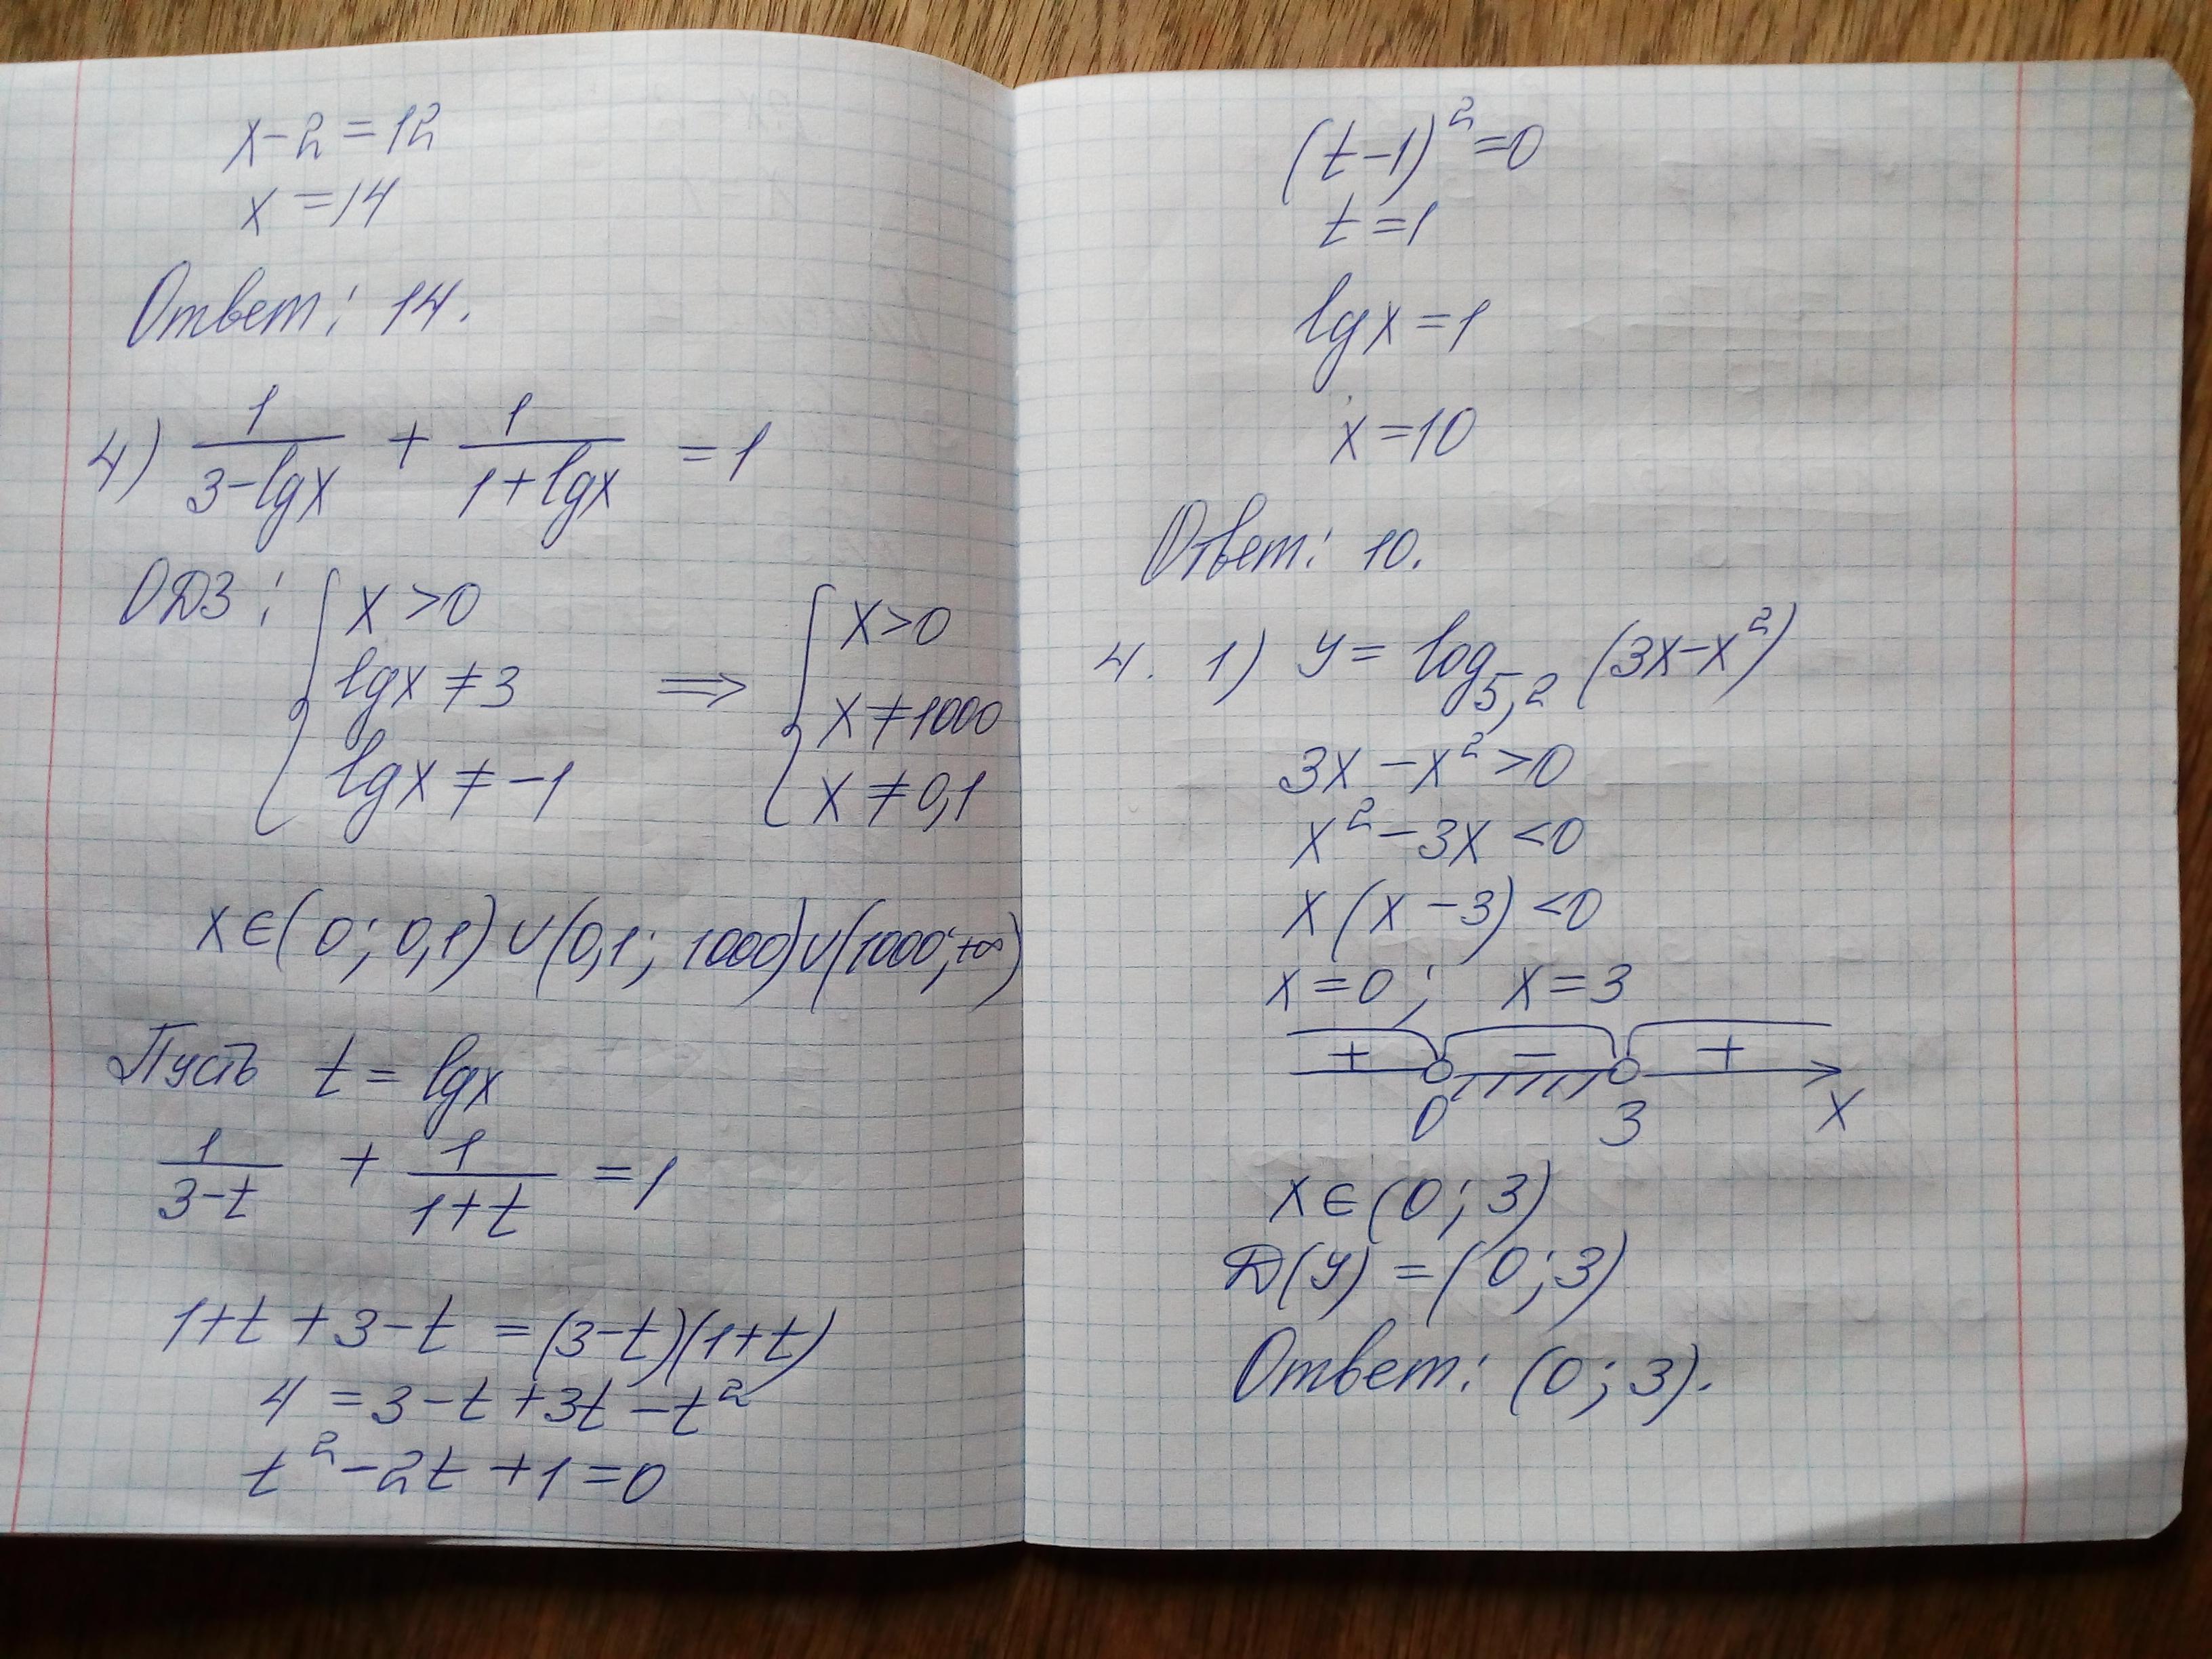 x-2=12
x=14
Ответ: 14.
4) 1/(3-lgx) + 1/(1+lgx) =1
ОДЗ: { x>0 lgx≠3 lgx≠-1 ⟹ { x>0 x≠1000 x≠0,1
x∈(0; 0,1)∪(0,1; 1000)∪(1000;+∞)
Пусть t = lgx
1/(3-t) + 1/(1+t) =1
1+t+3-t =(3-t)(1+t)
4 =3-t+3t-t²
t²-2t+1=0
(t-1)²=0
t=1
lgx=1
x=10
Ответ: 10.
4. 1) y= log₅,₂ (3x-x²)
3x-x²>0
x²-3x<0
x(x-3)<0
x=0; x=3
+ - +
0 3 x
x∈(0; 3)
Д(y) =(0;3)
Ответ: (0; 3).